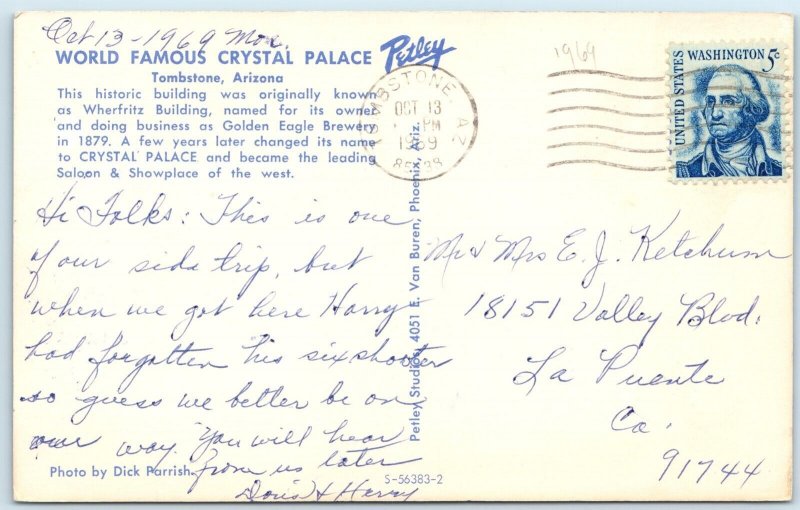 Oct 13 - 1969 Mon.
WORLD FAMOUS CRYSTAL PALACE
Petley
Tombstone, Arizona
This historic building was originally known
as Wherfritz Building, named for its owner
and doing business as Golden Eagle Brewery
in 1879. A few years later changed its name
to CRYSTAL PALACE and became the leading
Saloon & Showplace of the west.
Hi Folks: This is one
of our side trip, but
when we got here Harry
had forgotten his sixshooter
so guess we better be on
our way. You will hear
from us later
Doris & Harry
Photo by Dick Parrish
S-56383-2
Petley Studios, 4051 E. Van Buren, Phoenix, Ariz.
TOMBSTONE, AZ
OCT 13
PM
1969
85638
1969
UNITED STATES
WASHINGTON 5c
Mr & Mrs E. J. Ketchum
18151 Valley Blvd.
La Puente
Ca.
91744